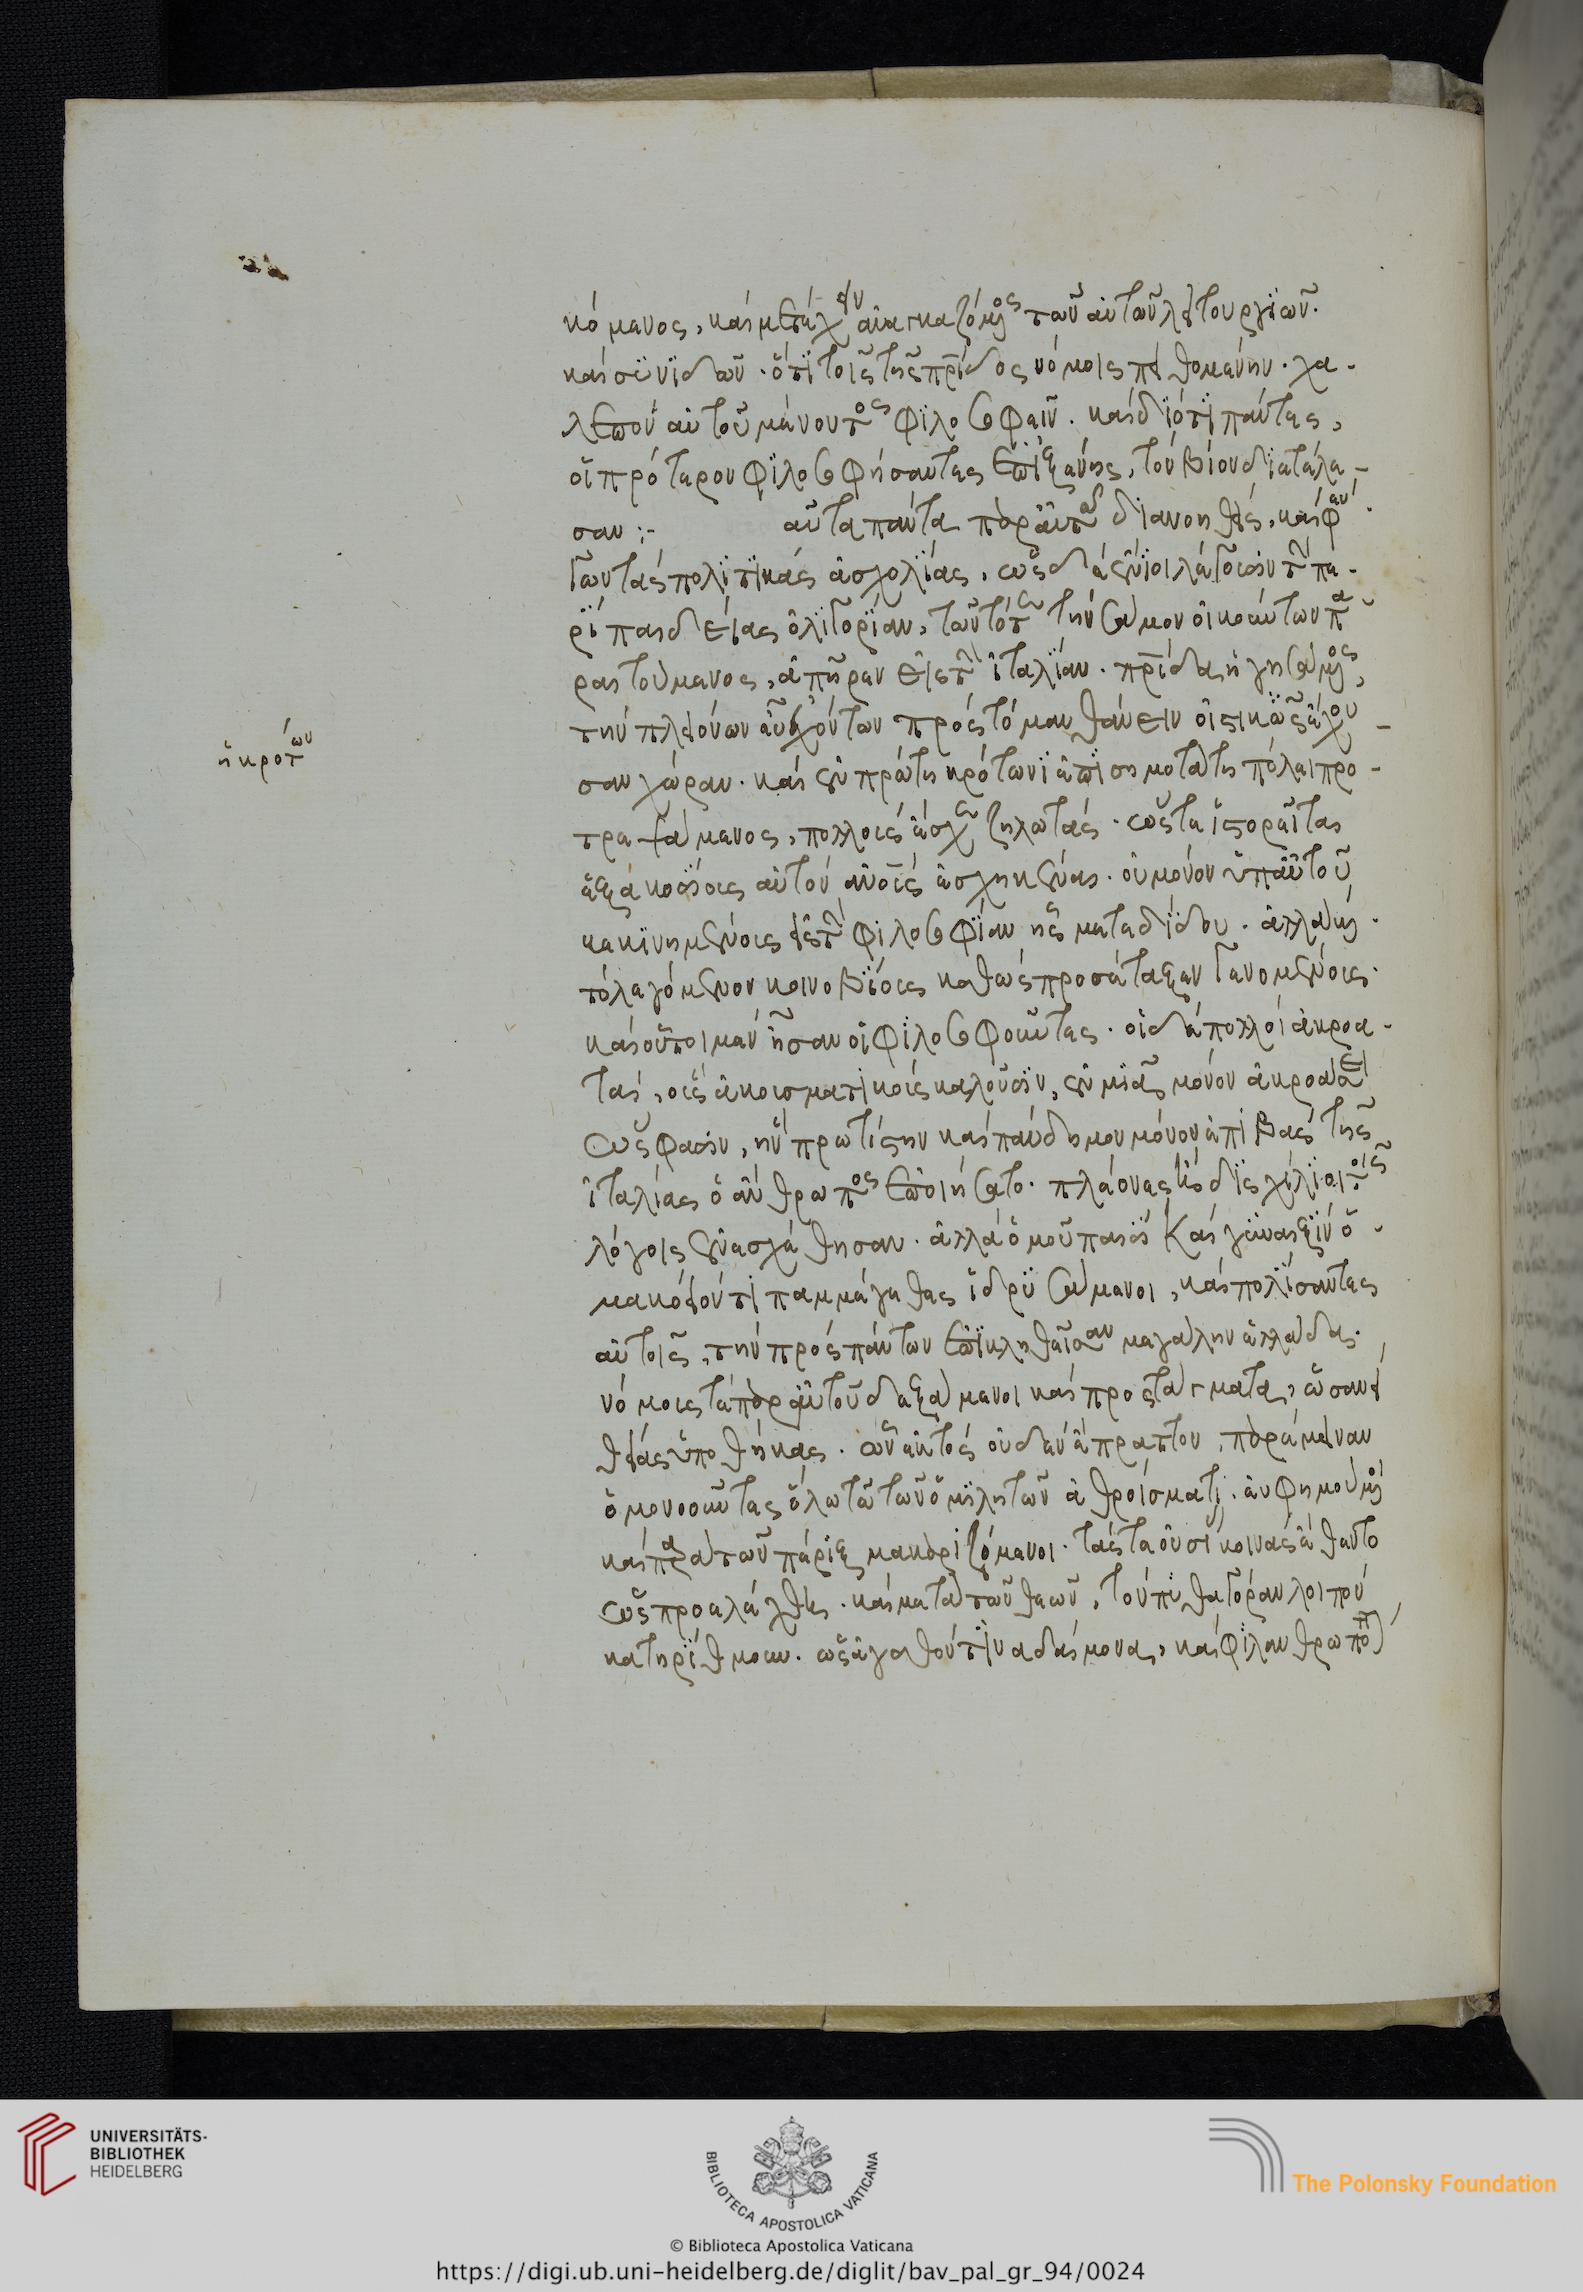 κόμενος, καὶ μετέχειν ἀναγκαζόμενος τῶν αὐτῶν λειτουργιῶν.
καὶ συνιδὼν. ὅτι τοῖς τῆς πατρίδος νόμοις πειθομένην. χα-
λεπὸν αὐτοῦ μένοντος φιλοσοφεῖν. καὶ διότι πάντες,
οἱ πρότερον φιλοσοφήσαντες ἐπὶ ξένης, τὸν βίον διετέλε-
σαν :- αὐτὰ πάντα παρ' αὐτῷ διανοηθεὶς, καὶ φεύ-
γων τὰς πολιτικὰς ἀσχολίας. ὡς δὲ ἔνιοι λέγουσιν τὴν πε-
ρὶ παιδείας ὀλιγορίαν, τῶν τότε τὴν σάμον οἰκούντων πα-
ραιτούμενος, ἀπῆρεν εἰς τὴν ἰταλίαν. πατρίδα ἡγησάμενος,
τὴν πλειόνων εὖ ἐχόντων πρὸς τὸ μανθάνειν οἰστικῶς ἔχου-
ἡ κρότων
σαν χώραν. καὶ ἐν πρώτη κρότωνι ἐπισημοτάτη πόλει προ-
τρεψάμενος, πολλοὺς ἔσχε ζηλωτάς. ὥστε ἱστορεῖται
ἑξακοσίους αὐτὸν ἀνους ἐσχηκέναι. οὐ μόνον ὑπ' αὐτοῦ
κεκινημένους εἰς τὴν φιλοσοφίαν ἧς μετεδίδου. ἀλλὰ καὶ
τὸ λεγόμενον κοινοβίους καθὼς προσέταξεν γενομένους.
καὶ οὗτοι μὲν ἦσαν οἱ φιλοσοφοῦντες. οἱ δὲ πολλοὶ ἀκροα-
ταὶ, οὓς ἀκουσματικοὺς καλοῦσιν, ἐν μιᾶ μόνον ἀκροάσει
ὥς φασὶν, ἣν πρωτίστην καὶ πάνδημον μόνον ἐπιβὰς τῆς
ἰταλίας ὁ ἄνθρωπος ἐποιήσατο. πλέονες ἢ δισχίλιοι τοῖς
λόγοις ἐνεσχέθησαν. ἀλλὰ ὁμοῦ παισὶ καὶ γυναιξὶν ὁ-
μακόειόν τι παμμέγεθες ἱδρυσάμενοι, καὶ πολίσαντες
αὐτοῖς, τὴν πρὸς πάντων ἐπικληθεῖσαν μεγάλην ἑλλάδα.
νόμους τὲ παρ' αὐτοῦ δεξάμενοι καὶ προστάγματα, ὡσανεὶ
θείας ὑποθήκας. ὧν ἐκτὸς οὐδὲν ἔπραττον, παρέμειναν
ὁμονοοῦντες ὅλω τῶ τῶν ὁμιλητῶν ἀθροίσματι. εὐφημούμενοι
καὶ παρὰ τῶν πέριξ μακαριζόμενοι. τάς τε οὐσίας κοινὰς ἔθεντο
ὡς προελέχθη. καὶ μετὰ τῶν θεῶν, τὸν πυθαγόραν λοιπὸν
κατηρίθμουν. ὡς ἀγαθόν τινα δαίμονα, καὶ φιλανθρωπό
UNIVERSITÄTS-
BIBLIOTHEK
HEIDELBERG
BIBLIOTECA APOSTOLICA VATICANA
The Polonsky Foundation
© Biblioteca Apostolica Vaticana
https://digi.ub.uni-heidelberg.de/diglit/bav_pal_gr_94/0024